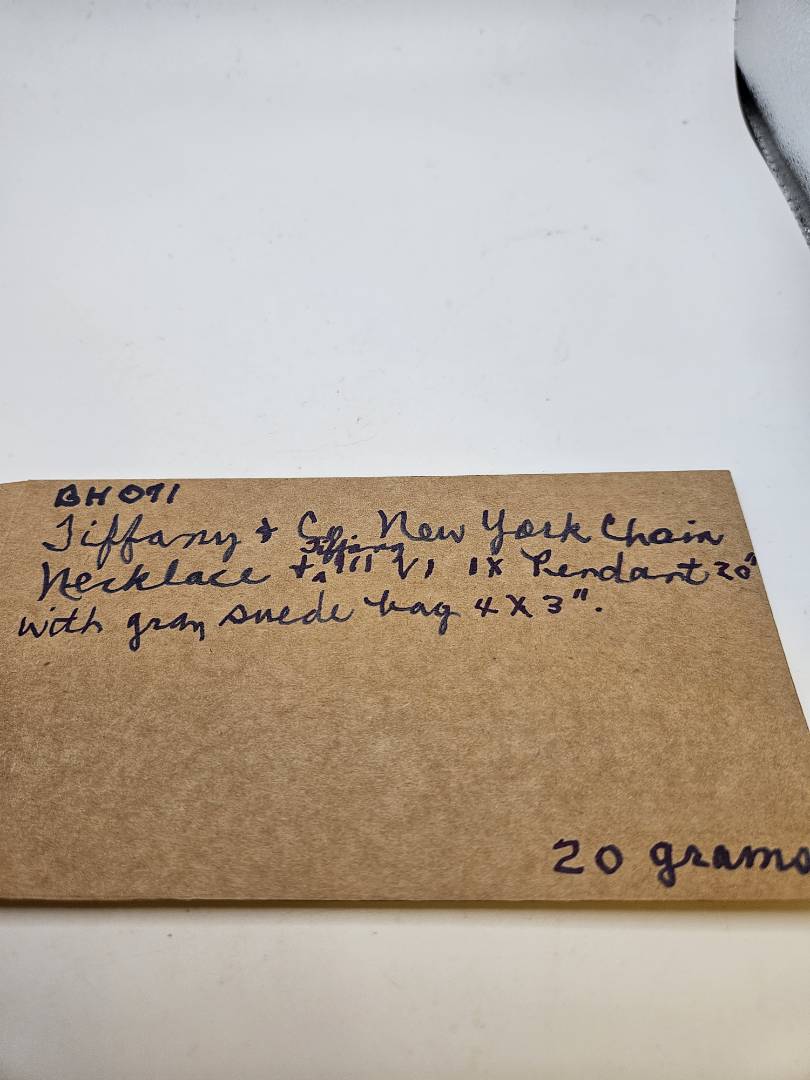 BH071
Tiffany & Co. New York Chain
Tiffany
Necklace + ^ 1 X Pendant 20"
with gray suede bag 4 X 3".
20 grams